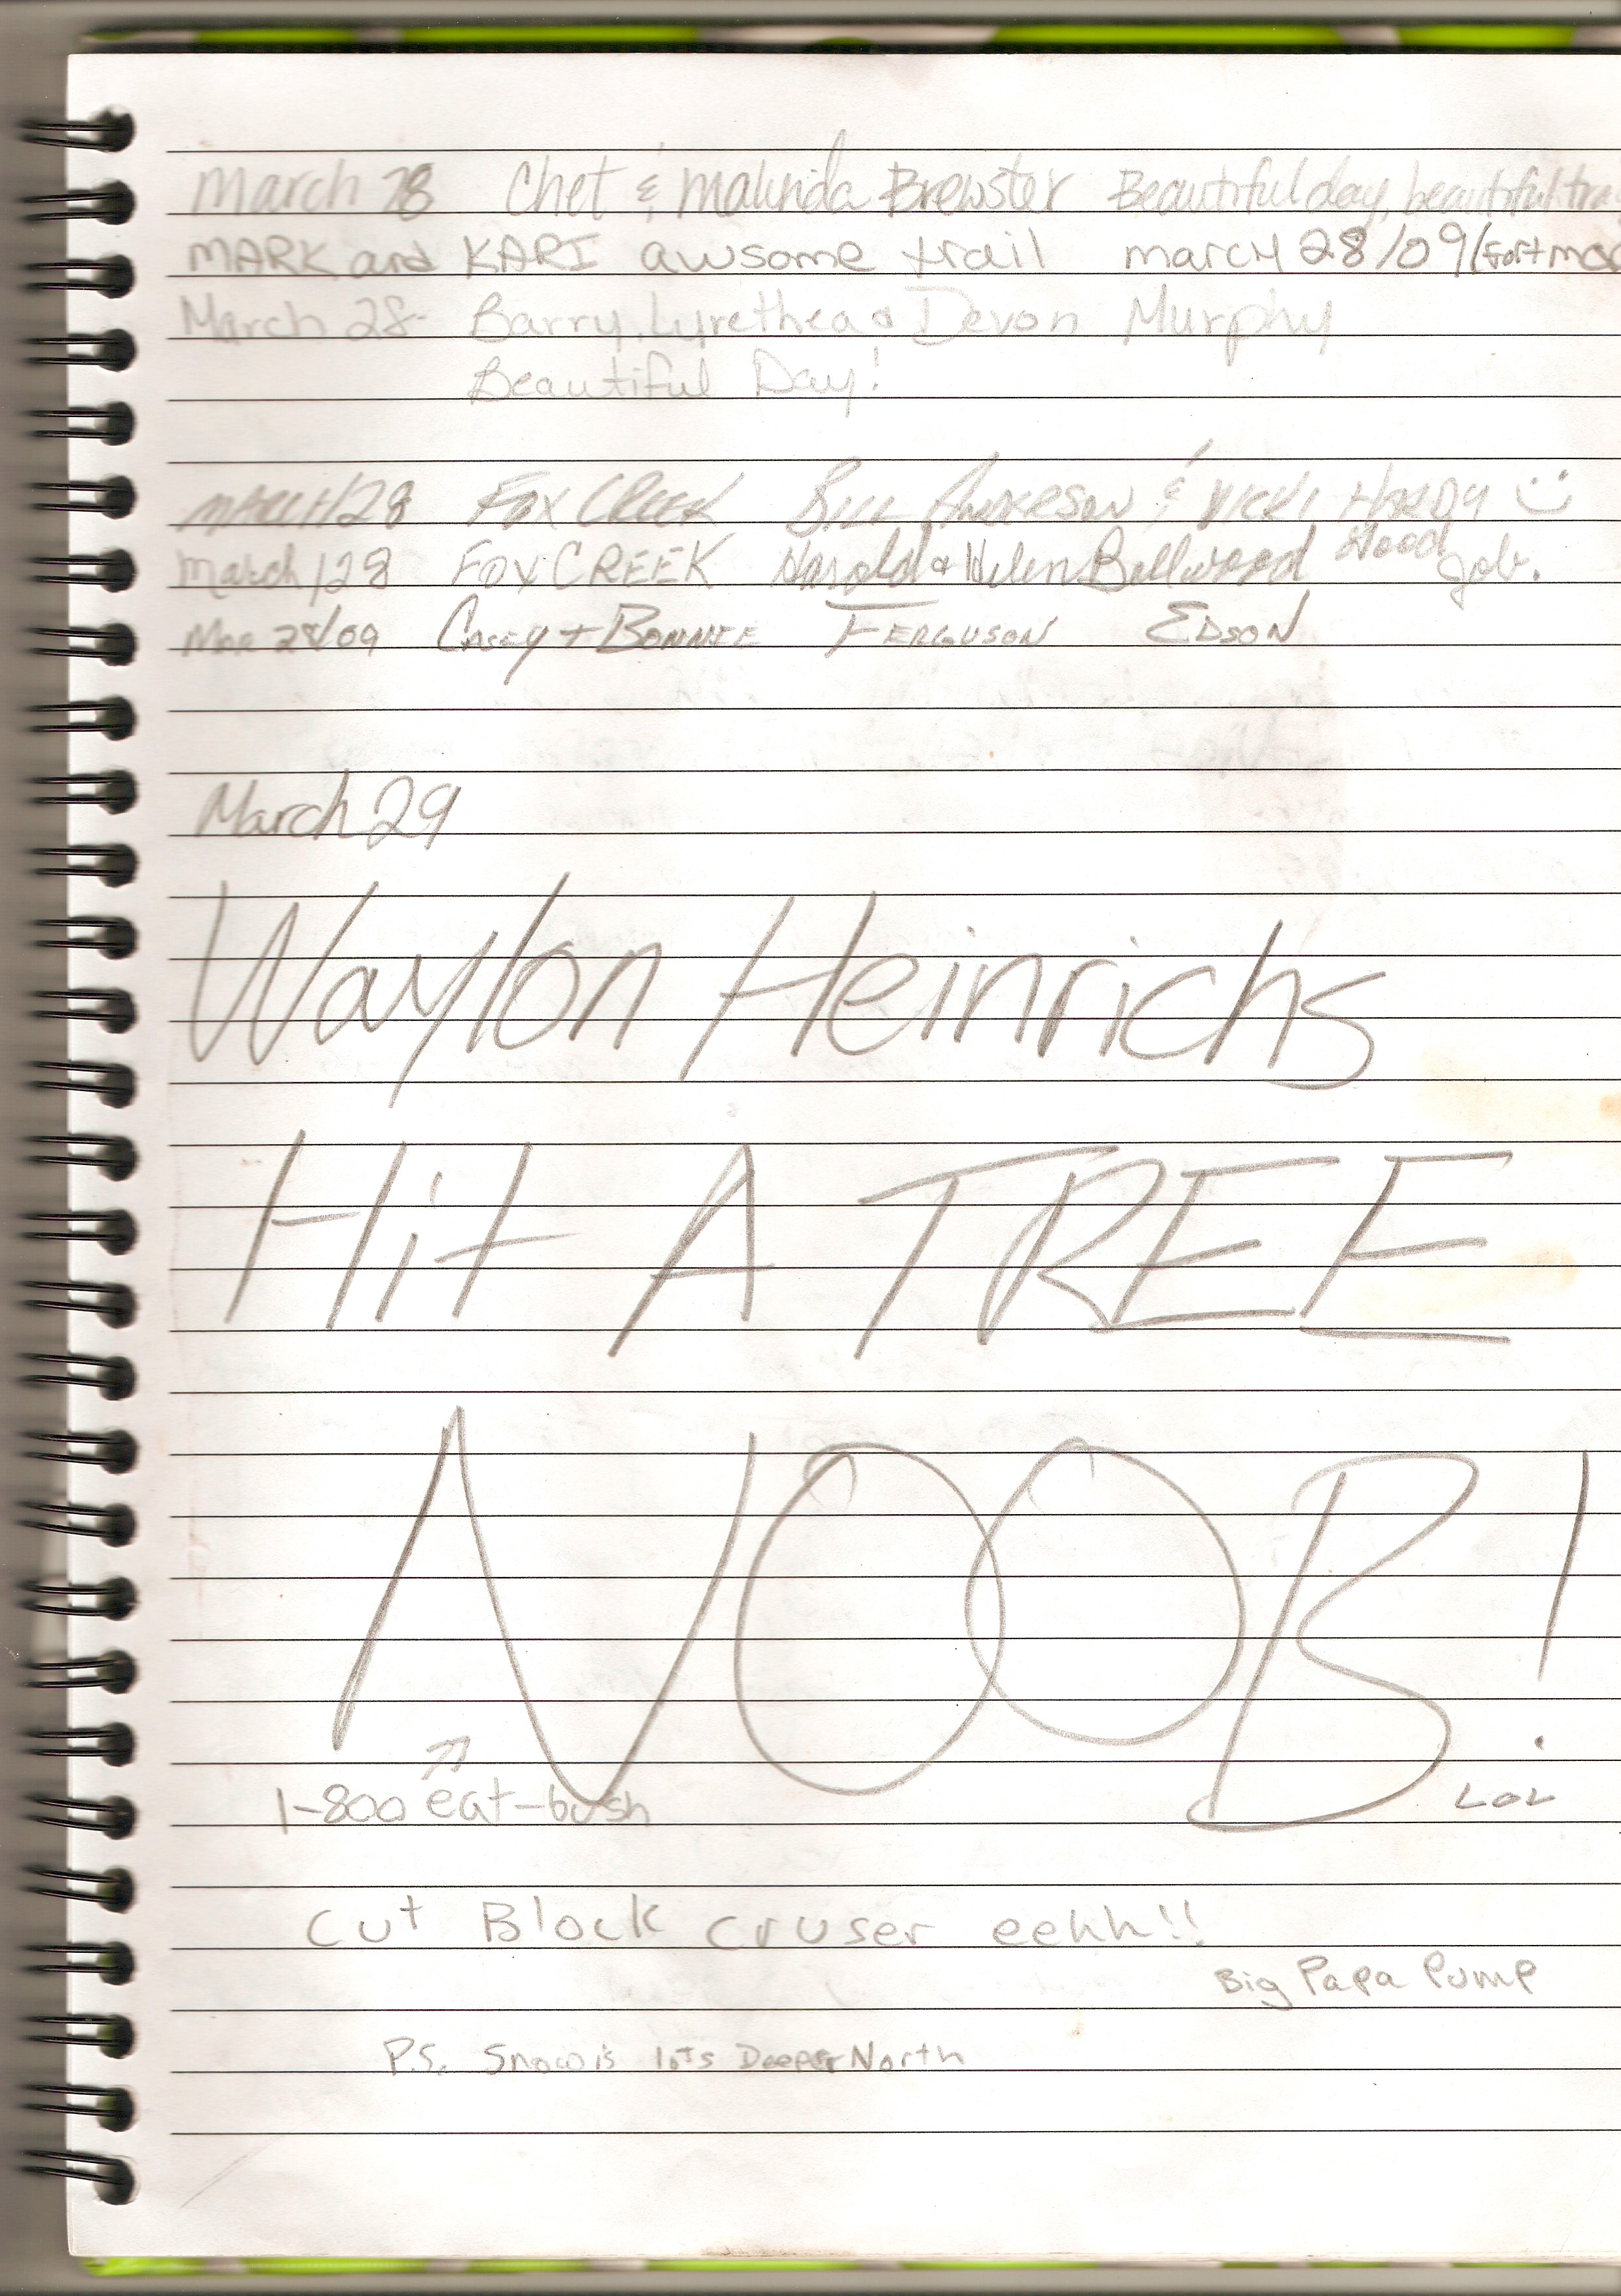 March 28 Chet & Malinda Brewster Beautiful day, beautiful tra
MARK and KARI awsome trail march 28/09 (Fort mac
March 28- Barry, Lyrethea & Devon Murphy
Beautiful Day!
MARCH/28 FOX CREEK BILL ANDERSON & VICKI HARDY
March/28 FOX CREEK Harold & Helen Bellwood Good job.
MAR 28/09 CASEY + BONNIE FERGUSON EDSON
March 29
Waylon Heinrichs
Hit A TREE
NOOB!
1-800 eat-bush LOL
Cut Block cruser eehh!!
Big Papa Pump
P.S. Snow is lots Deeper North